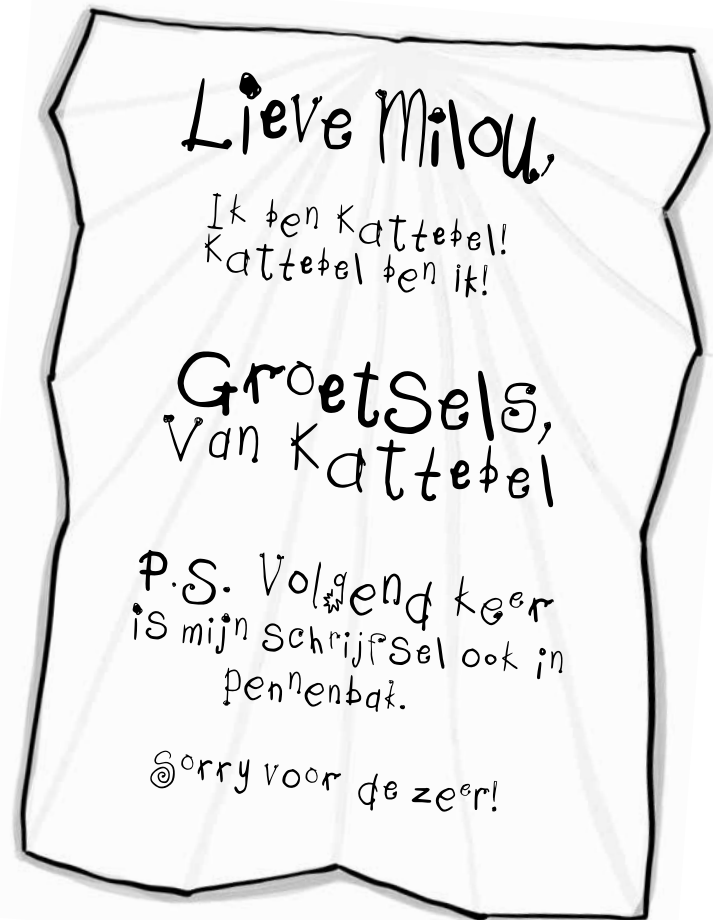 Lieve Milou,
Ik ben Kattebel!
Kattebel ben ik!
Groetsels,
Van Kattebel
P.S. Volgend keer
is mijn schrijfsel ook in
pennenbak.
Sorry voor de zeer!